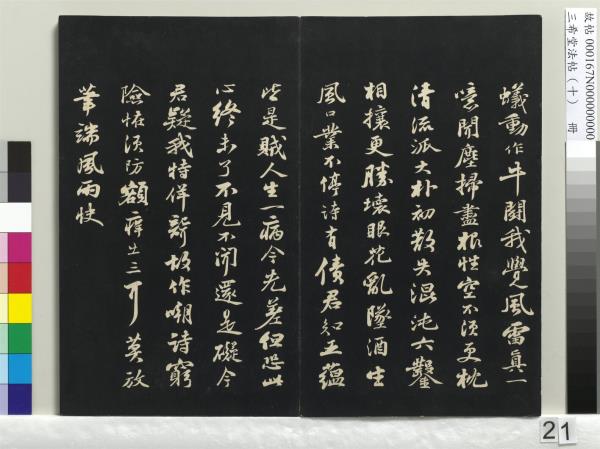 蟻動作牛鬪我覺風雷真一
噫聞塵掃盡根性空不須更枕
清流派大朴初散失混沌六鑿
相攘更勝壞眼花亂墜酒生
風口業不停詩有債君知五蘊
皆是賊人生一病今先差但恐此
心終未了不見不聞還是礙今
君疑我特佯聾故作嘲詩窮
險怪須防額癢出三耳莫放
筆端風雨快
故帖 000167N000000000
三希堂法帖(十) 冊
21